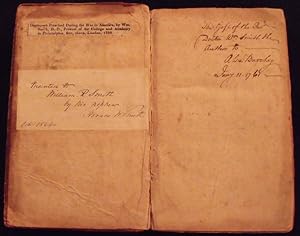 Discourses Preached During the War in America, by Wm.
Smith, D. D., Provost of the College and Academy
in Philadelphia, 8vo, London, 1759
Presented to
William R Smith
by his nephew
Horace W Smith
The Gift of the Revd
Doctor Wm Smith the
Author to
Barclay
Jany 11. 176